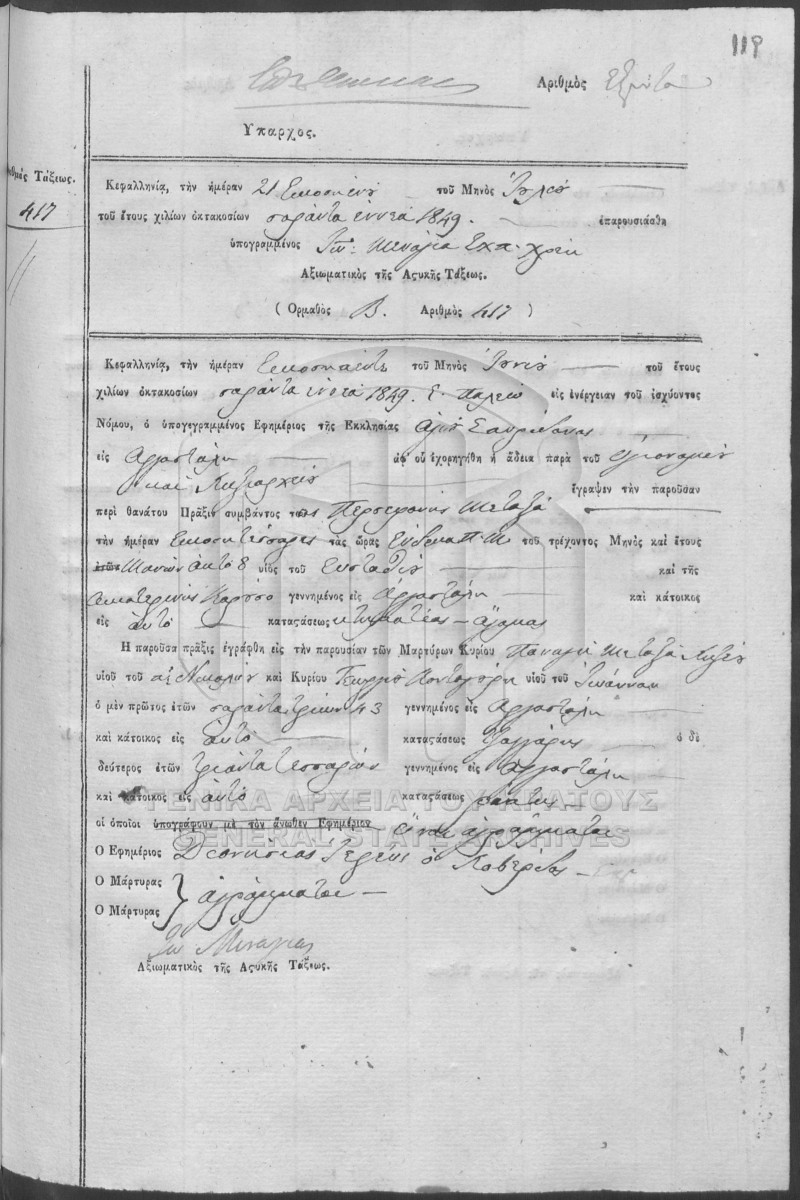 119
Ἀριθμὸς Ἑξῆντα
Ὕπαρχος.
Ἀριθμὸς Τάξεως.
417
Κεφαλληνία, τὴν ἡμέραν 21 Εικοσι ενο τοῦ Μηνὸς Ἰουλίου
τοῦ ἔτους χιλίων ὀκτακοσίων σαράντα εννεα 1849. ἐπαρουσιάσθη
ὑπογραμμένος
Ἀξιωματικὸς τῆς Ἀςυκῆς Τάξεως.
( Ὁρμαθὸς Β. Ἀριθμὸς 417 )
Κεφαλληνία, τὴν ἡμέραν Εικοσιπεντε τοῦ Μηνὸς Ἰουνίου τοῦ ἔτους
χιλίων ὀκτακοσίων σαράντα εννεα 1849. Ε. Παλαιό εἰς ἐνέργειαν τοῦ ἰσχύοντος
Νόμου, ὁ ὑπογεγραμμένος Ἐφημέριος τῆς Ἐκκλησίας Αγίου Σπυρίδωνος
εἰς Αργοστόλι ἀφ' οὗ ἐχορηγήθη ἡ ἄδεια παρὰ τοῦ Υγιονομείου
και ἔγραψεν τὴν παροῦσαν
περὶ θανάτου Πρᾶξιν συμβάντος τῆς Περσεφονης Μεταξά
τὴν ἡμέραν Εικοσιτεσσαρες τὰς ὥρας Ενδεκα Π. Μ. τοῦ τρέχοντος Μηνὸς καὶ ἔτους
ἐτῶν Μηνών οκτο 8 υἱὸς τοῦ Ευσταθίου καὶ τῆς
Αικατερίνης Καρύσο γεννημένος εἰς Αργοστόλι καὶ κάτοικος
εἰς αυτό καταςάσεως κτηματίας - άγαμος
Ἡ παροῦσα πρᾶξις ἐγράφθη εἰς τὴν παρουσίαν τῶν Μαρτύρων Κυρίου Παναγή Μεταξά
υἱοῦ τοῦ Νικολάου καὶ Κυρίου Γεωργίου υἱοῦ τοῦ Ἰωάννου
ὁ μὲν πρῶτος ἐτῶν σαραντατριων 43 γεννημένος εἰς Αργοστόλι
καὶ κάτοικος εἰς αυτό καταςάσεως ὁ δὲ
δεύτερος ἐτῶν τριαντα τεσσαρων γεννημένος εἰς Αργοστόλι
καὶ κάτοικος εἰς αυτό καταςάσεως
οἱ ὁποῖοι ὑπογράφουν μὲ τὸν ἄνωθεν Ἐφημέριον είναι αγράμματοι
Ὁ Ἐφημέριος
Ὁ Μάρτυρας
αγράμματοι
Ὁ Μάρτυρας
Ἀξιωματικὸς τῆς Ἀςυκῆς Τάξεως.
ΓΕΝΙΚΑ ΑΡΧΕΙΑ ΤΟΥ ΚΡΑΤΟΥΣ
GENERAL STATE ARCHIVES